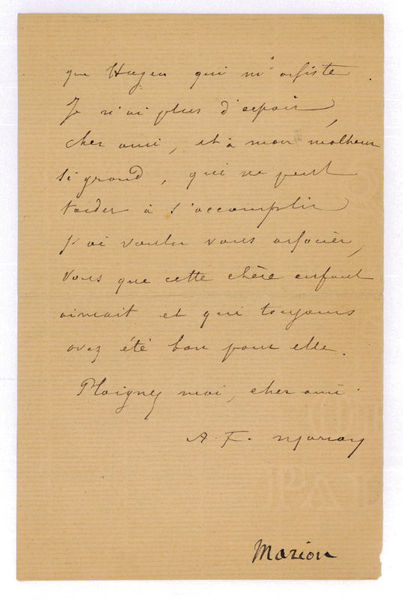 que Hugen qui m'assiste.
Je n'ai plus d'espoir,
cher ami, et à mon malheur
si grand, qui ne peut
tarder à s'accomplir
j'ai voulu vous associer,
vous que cette chère enfant
aimait et qui toujours
avez été bon pour elle.
Plaignez moi, cher ami
A. F. Marion
Marion